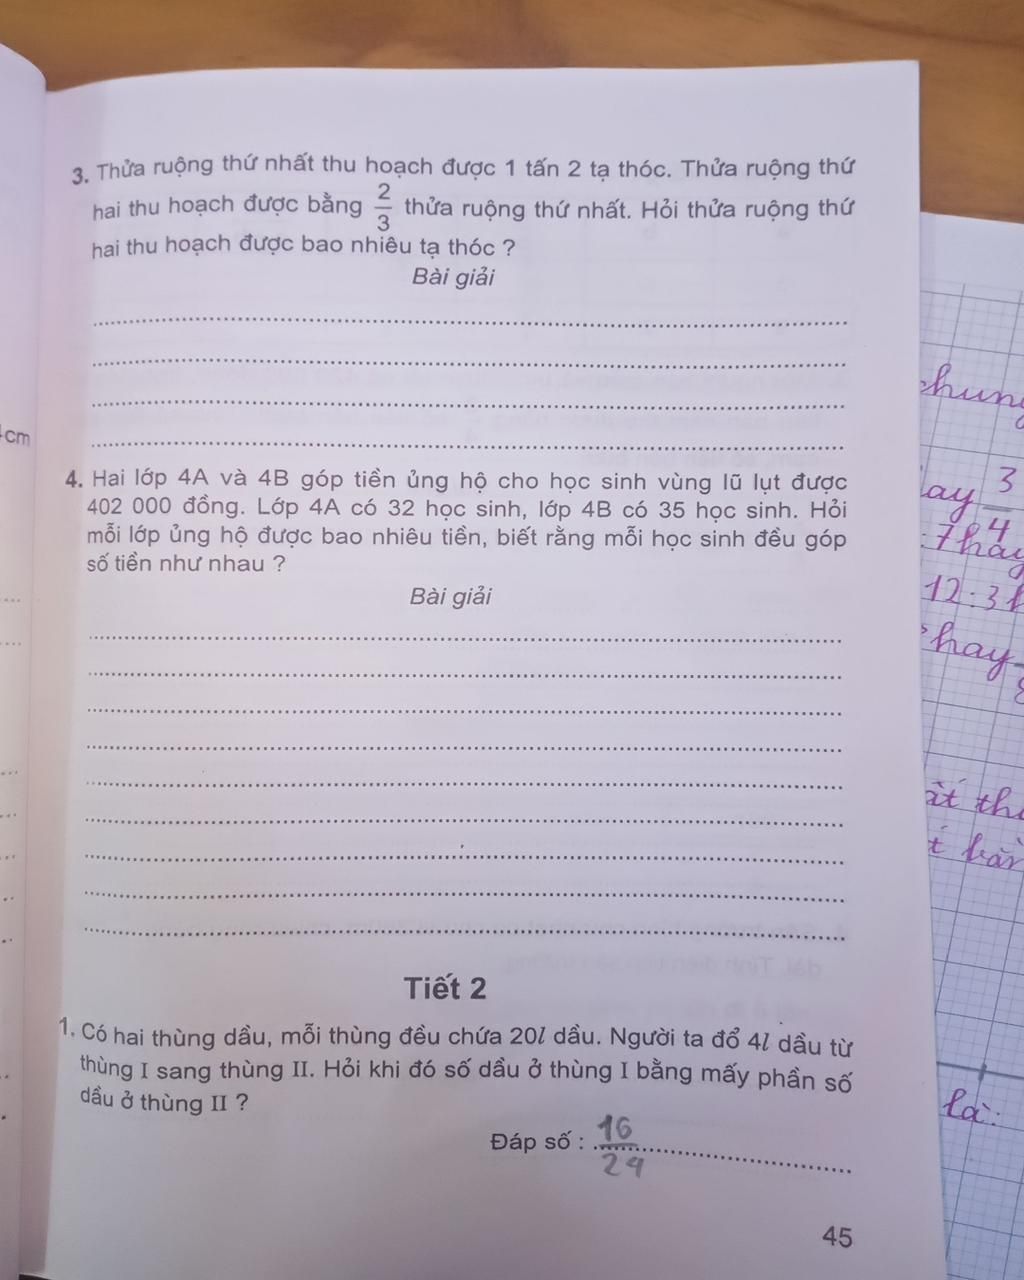 3. Thửa ruộng thứ nhất thu hoạch được 1 tấn 2 tạ thóc. Thửa ruộng thứ
hai thu hoạch được bằng 2/3 thửa ruộng thứ nhất. Hỏi thửa ruộng thứ
hai thu hoạch được bao nhiêu tạ thóc ?
Bài giải
4. Hai lớp 4A và 4B góp tiền ủng hộ cho học sinh vùng lũ lụt được
402 000 đồng. Lớp 4A có 32 học sinh, lớp 4B có 35 học sinh. Hỏi
mỗi lớp ủng hộ được bao nhiêu tiền, biết rằng mỗi học sinh đều góp
số tiền như nhau ?
Bài giải
Tiết 2
1. Có hai thùng dầu, mỗi thùng đều chứa 20l dầu. Người ta đổ 4l dầu từ
thùng I sang thùng II. Hỏi khi đó số dầu ở thùng I bằng mấy phần số
dầu ở thùng II ?
Đáp số : 16/24
45
cm
chung
3
4
hay
12:3
hay
là: